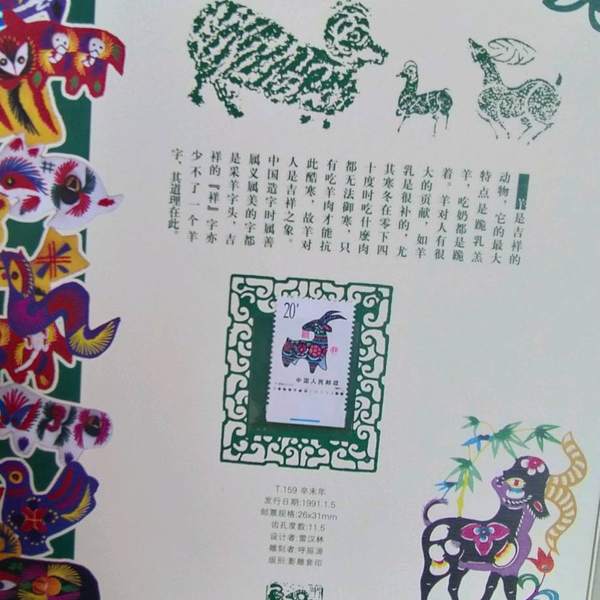 羊是吉祥的
动物，它的最大
特点是跪乳羔
羊，吃奶都是跪
着。羊对人有很
大的贡献，如羊
乳是很补的，尤
其寒冬在零下四
十度时吃什麽肉
都无法御寒，只
有吃羊肉才能抗
此酷寒，故羊对
人是吉祥之象。
中国造字时属善
属义属美的字都
是采羊字头，吉
祥的『祥』字亦
少不了一个羊
字，其道理在此。
20分
中国人民邮政
T.159 辛未年
发行日期:1991.1.5
邮票规格:26x31mm
齿孔度数:11.5
设计者:雷汉林
雕刻者:呼振源
版别:影雕套印